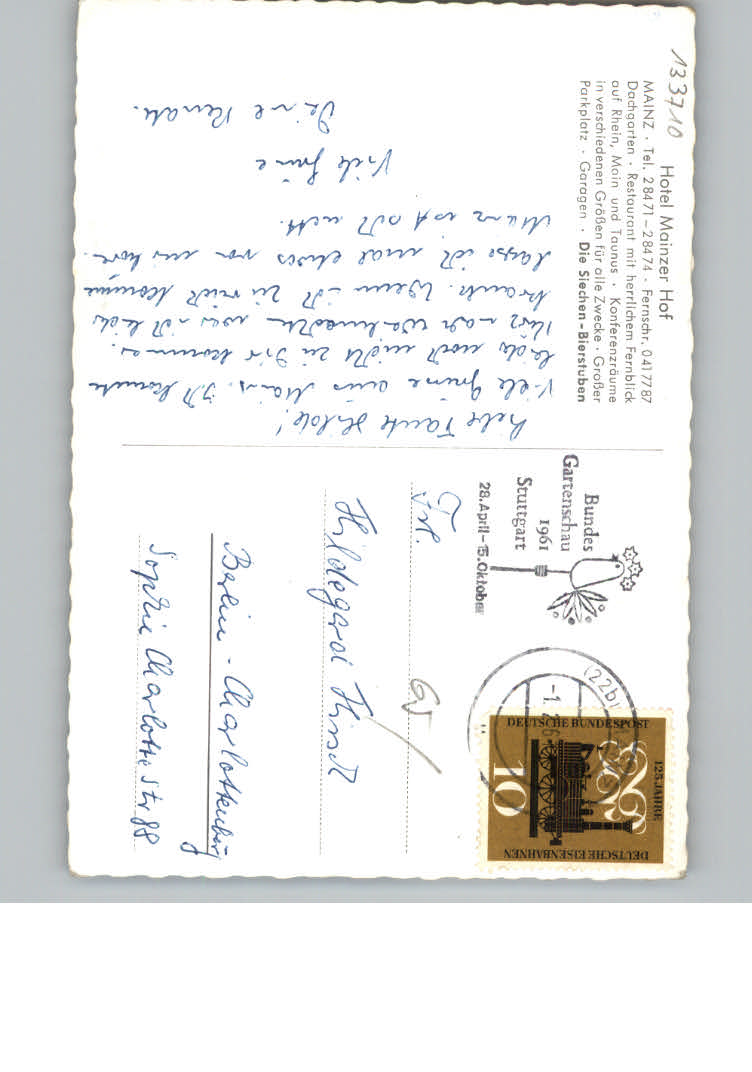 133710
Hotel Mainzer Hof
MAINZ · Tel. 28471–28474 · Fernschr. 0417787
Dachgarten · Restaurant mit herrlichem Fernblick
auf Rhein, Main und Taunus · Konferenzräume
in verschiedenen Größen für alle Zwecke · Großer
Parkplatz · Garagen · Die Siechen-Bierstuben
Liebe Tante Hilde!
Viele Grüße aus Mainz. Ich konnte
leider noch nicht zu Dir kommen.
Kurz nach Weihnachten war ich leider
krank. Wenn ich zurück komme
lasse ich mal etwas von mir hören.
Mainz ist sehr nett.
Viele Grüße
Deine Renate.
Bundes
Gartenschau
1961
Stuttgart
28. April – 15. Oktober
(22b)
DEUTSCHE BUNDESPOST
125 JAHRE
DEUTSCHE EISENBAHNEN
10
Frl.
Hildegard Hirsch
Berlin - Charlottenburg
Sophie Charlotte Str 88